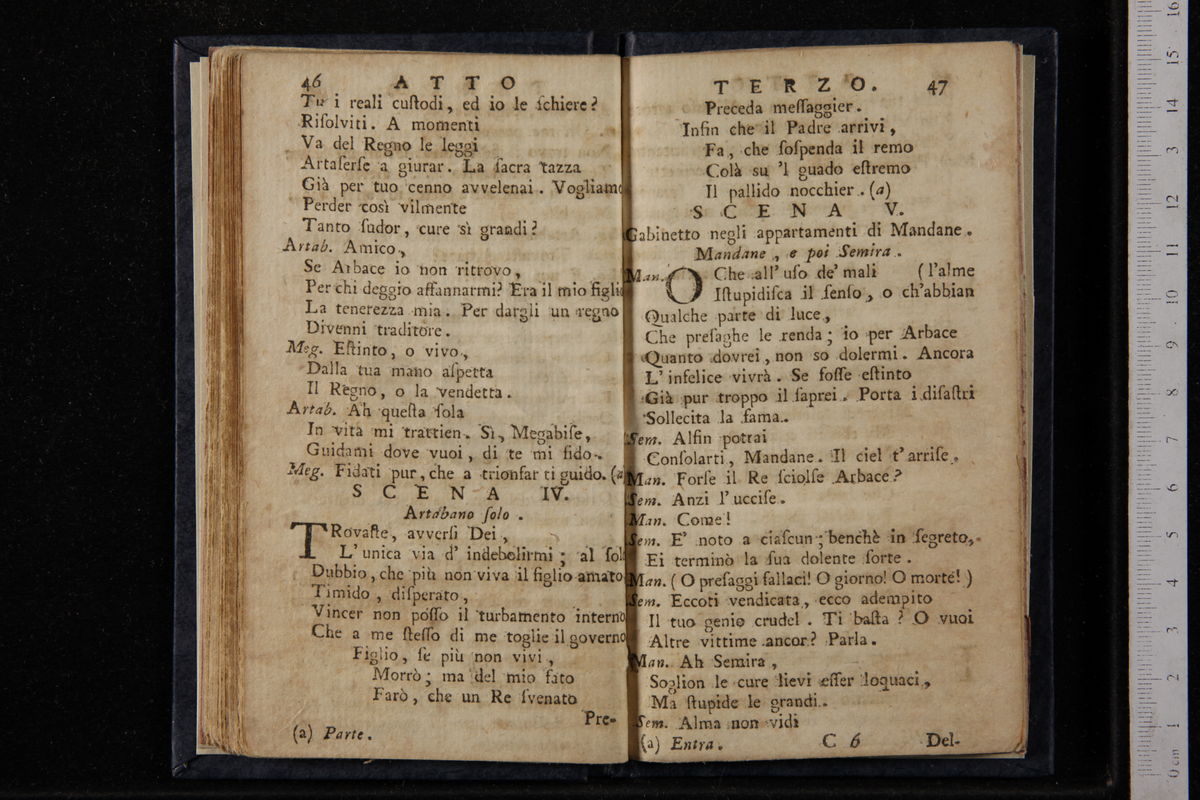 46 ATTO
Tu i reali cuſtodi, ed io le ſchiere?
Riſolviti. A momenti
Va del Regno le leggi
Artaſerſe a giurar. La ſacra tazza
Già per tuo cenno avvelenai. Vogliamo
Perder così vilmente
Tanto ſudor, cure sì grandi?
Artab. Amico,
Se Arbace io non ritrovo,
Per chi deggio affannarmi? Era il mio figlio
La tenerezza mia. Per dargli un regno
Divenni traditore.
Meg. Eſtinto, o vivo,
Dalla tua mano aſpetta
Il Regno, o la vendetta.
Artab. Ah queſta ſola
In vita mi trattien. Sì, Megabiſe,
Guidami dove vuoi, di te mi fido.
Meg. Fidati pur, che a trionfar ti guido. (a
SCENA IV.
Artabano ſolo.
TRovaſte, avverſi Dei,
L'unica via d'indebolirmi; al ſol
Dubbio, che più non viva il figlio amato
Timido, diſperato,
Vincer non poſſo il turbamento interno
Che a me ſteſſo di me toglie il governo
Figlio, ſe più non vivi,
Morrò; ma del mio fato
Farò, che un Re ſvenato
Pre-
(a) Parte.
TERZO. 47
Preceda meſſaggier.
Infin che il Padre arrivi,
Fa, che ſoſpenda il remo
Colà su 'l guado eſtremo
Il pallido nocchier. (a)
SCENA V.
Gabinetto negli appartamenti di Mandane.
Mandane, e poi Semira.
Man. O Che all' uſo de' mali (l'alme
Iſtupidiſca il ſenſo, o ch'abbian
Qualche parte di luce,
Che preſaghe le renda; io per Arbace
Quanto dovrei, non so dolermi. Ancora
L'infelice vivrà. Se foſſe eſtinto
Già pur troppo il ſaprei. Porta i diſaſtri
Sollecita la fama.
Sem. Alfin potrai
Conſolarti, Mandane. Il ciel t'arriſe.
Man. Forſe il Re ſciolſe Arbace?
Sem. Anzi l'ucciſe.
Man. Come!
Sem. E' noto a ciaſcun; benchè in ſegreto,
Ei terminò la ſua dolente ſorte.
Man. (O preſaggi fallaci! O giorno! O morte!)
Sem. Eccoti vendicata, ecco adempito
Il tuo genio crudel. Ti baſta? O vuoi
Altre vittime ancor? Parla.
Man. Ah Semira,
Soglion le cure lievi eſſer loquaci,
Ma ſtupide le grandi.
Sem. Alma non vidi
(a) Entra. C 6 Del-
0 cm 1 2 3 4 5 6 7 8 9 10 11 12 3 14 15 16